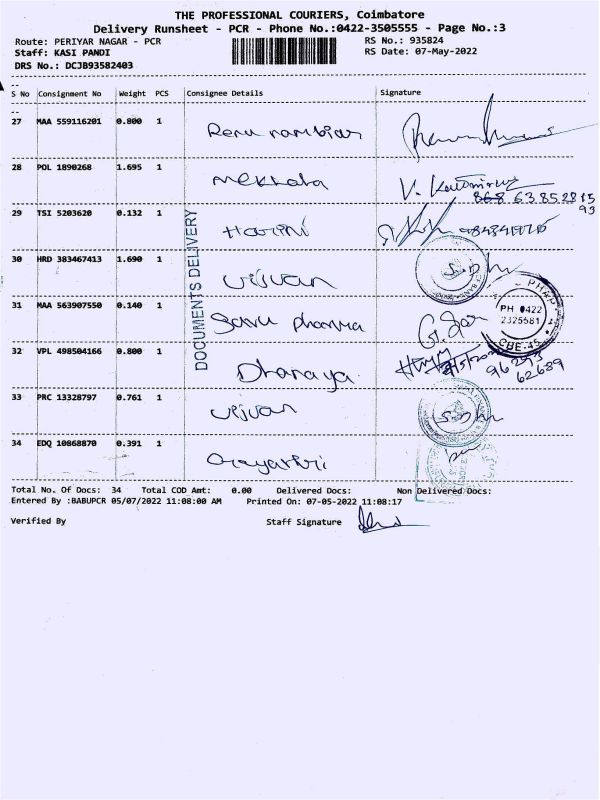 THE PROFESSIONAL COURIERS, Coimbatore
Delivery Runsheet - PCR - Phone No.:0422-3505555 - Page No.:3
Route: PERIYAR NAGAR - PCR RS No.: 935824
Staff: KASI PANDI RS Date: 07-May-2022
DRS No.: DCJB93582403
S No Consignment No Weight PCS Consignee Details Signature
27 MAA 559116201 0.800 1 Renu nambiar
28 POL 1890268 1.695 1 mekhala
63 85 28 15
93
29 TSI 5203620 0.132 1 Harini
DOCUMENTS DELIVERY
30 HRD 383467413 1.690 1 Vijvan
31 MAA 563907550 0.140 1 Sanu pharma
PH 0422
2325581
CBE-45
32 VPL 498504166 0.800 1 Dhanaya
96293
62689
33 PRC 13328797 0.761 1 Vijvan
34 EDQ 10868870 0.391 1
Total No. Of Docs: 34 Total COD Amt: 0.00 Delivered Docs: Non Delivered Docs:
Entered By :BABUPCR 05/07/2022 11:08:00 AM Printed On: 07-05-2022 11:08:17
Verified By Staff Signature